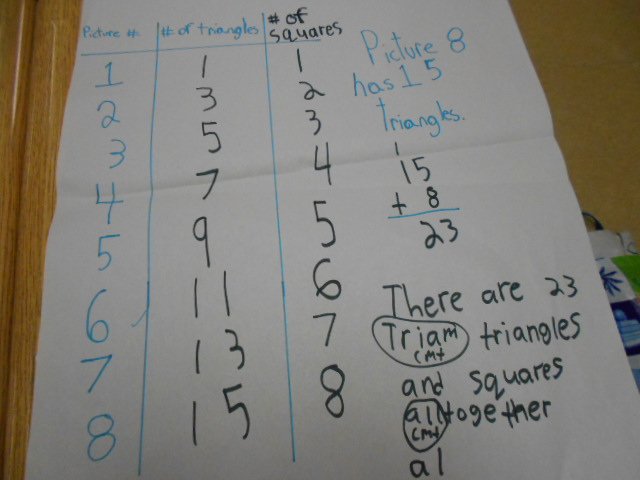 Picture # # of triangles # of squares
1 1 1
2 3 2
3 5 3
4 7 4
5 9 5
6 11 6
7 13 7
8 15 8
Picture 8
has 15
triangles.
1
15
+ 8
23
There are 23
Triam triangles
cmt
and squares
alltogether
cmt
al